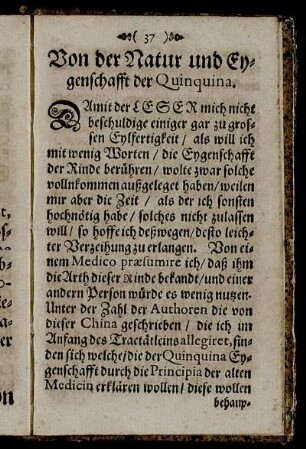 ( 37 )
Von der Natur und Ey-
genschafft der Quinquina.
DAmit der LESER mich nicht
beschuldige einiger gar zu gros-
sen Eylfertigkeit / als will ich
mit wenig Worten / die Eygenschafft
der Rinde berühren / wolte zwar solche
vollnkommen außgeleget haben / weilen
mir aber die Zeit / als der ich sonsten
hochnötig habe / solches nicht zulassen
will / so hoffe ich deßwegen / desto leich-
ter Verzeihung zu erlangen. Von ei-
nem Medico præsumire ich / daß ihm
die Arth dieser Rinde bekandt / und einer
andern Person würde es wenig nutzen.
Unter der Zahl der Authoren die von
dieser China geschrieben / die ich im
Anfang des Tractätleins allegiret, fin-
den sich welche / die der Quinquina Ey-
genschafft durch die Principia der alten
Medicin erklären wollen / diese wollen
behaup-